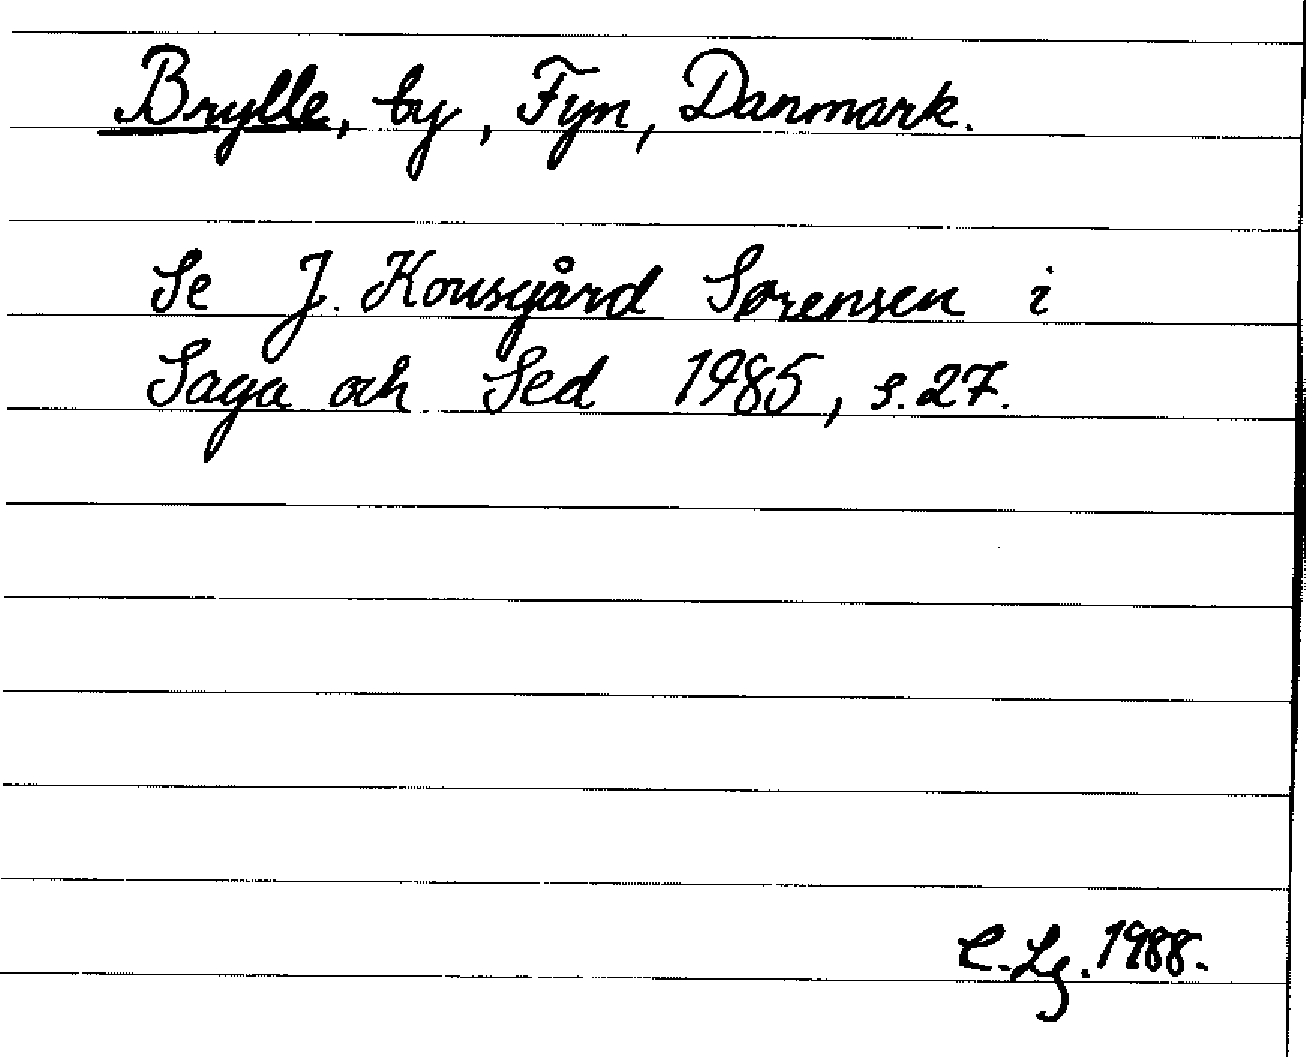 Brylle, by, Fyn, Danmark.
Se J. Kousgård Sørensen i
Saga och Sed 1985, s. 27.
C. Lg. 1988.